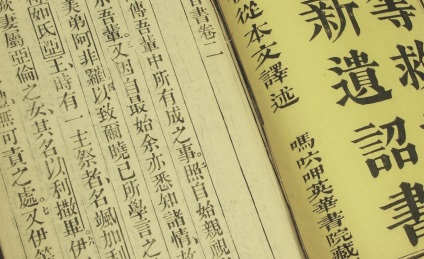 等救
新遺詔書
從本文譯述
嗎㕷呷英華書院藏
音書卷二
傳吾輩中所有成之事。照自始親視
吾輩。又因自最始余亦悉知諸情故
美的阿非羅以致爾曉已所學言之
如氏亞王時有一主祭者名颯加利
妻屬亞倫之女其名以利撒
無可責之處。又伊等